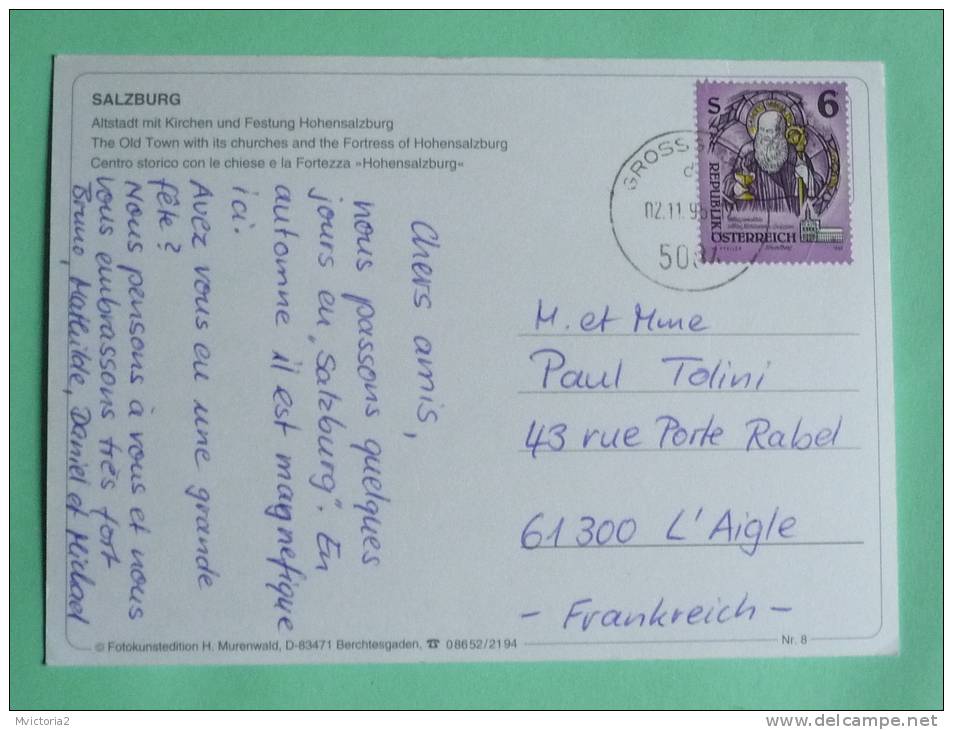 SALZBURG
Altstadt mit Kirchen und Festung Hohensalzburg
The Old Town with its churches and the Fortress of Hohensalzburg
Centro storico con le chiese e la Fortezza »Hohensalzburg«
Chers amis,
nous passons quelques
jours en „Salzburg". En
automne il est magnefique
ici.
Avez vous eu une grande
fête?
Nous pensons à vous et nous
vous embrassons très fort
Bruno, Mathilde, Daniel et Michael
S 6
REPUBLIK
ÖSTERREICH
GROSS
02.11.9
M. et Mme
Paul Tolini
43 rue Porte Rabel
61300 L'Aigle
- Frankreich -
© Fotokunstedition H. Murenwald, D-83471 Berchtesgaden, ☎ 08652/2194
Nr. 8
Mvictoria2
www.delcampe.net